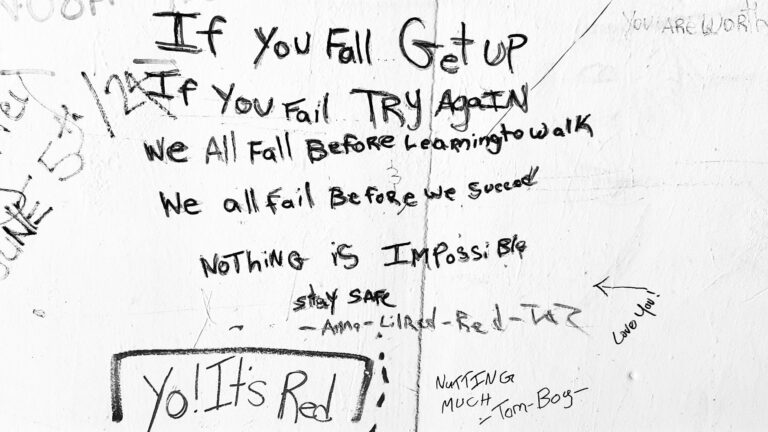 YOU ARE WORTH
If You Fall Get UP
If You Fail TRY AgaIN
We All Fall Before Learning to walk
We all Fail Before we Succeed
NoTHiNG is IMPossiBle
stay SAFE
-Anna-LilRed-Red-
Love You!
Yo! It's Red
NuTTING
MUCH
-Tom-Boy-
JUNE 5th